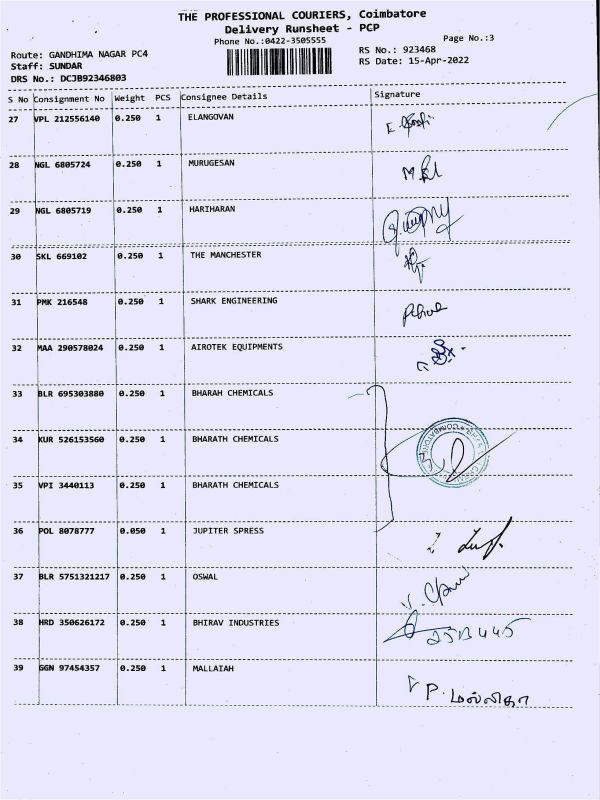 THE PROFESSIONAL COURIERS, Coimbatore
Delivery Runsheet - PCP
Phone No.:0422-3505555
Page No.:3
Route: GANDHIMA NAGAR PC4
RS No.: 923468
Staff: SUNDAR
RS Date: 15-Apr-2022
DRS No.: DCJB92346803
S No Consignment No Weight PCS Consignee Details Signature
27 VPL 212556140 0.250 1 ELANGOVAN
28 NGL 6805724 0.250 1 MURUGESAN
29 NGL 6805719 0.250 1 HARIHARAN
30 SKL 669102 0.250 1 THE MANCHESTER
31 PMK 216548 0.250 1 SHARK ENGINEERING
32 MAA 290578024 0.250 1 AIROTEK EQUIPMENTS
33 BLR 695303880 0.250 1 BHARAH CHEMICALS
34 KUR 526153560 0.250 1 BHARATH CHEMICALS
35 VPI 3440113 0.250 1 BHARATH CHEMICALS
36 POL 8078777 0.050 1 JUPITER SPRESS
37 BLR 5751321217 0.250 1 OSWAL
38 HRD 350626172 0.250 1 BHIRAV INDUSTRIES
39 GGN 97454357 0.250 1 MALLAIAH
P. மல்லிகா